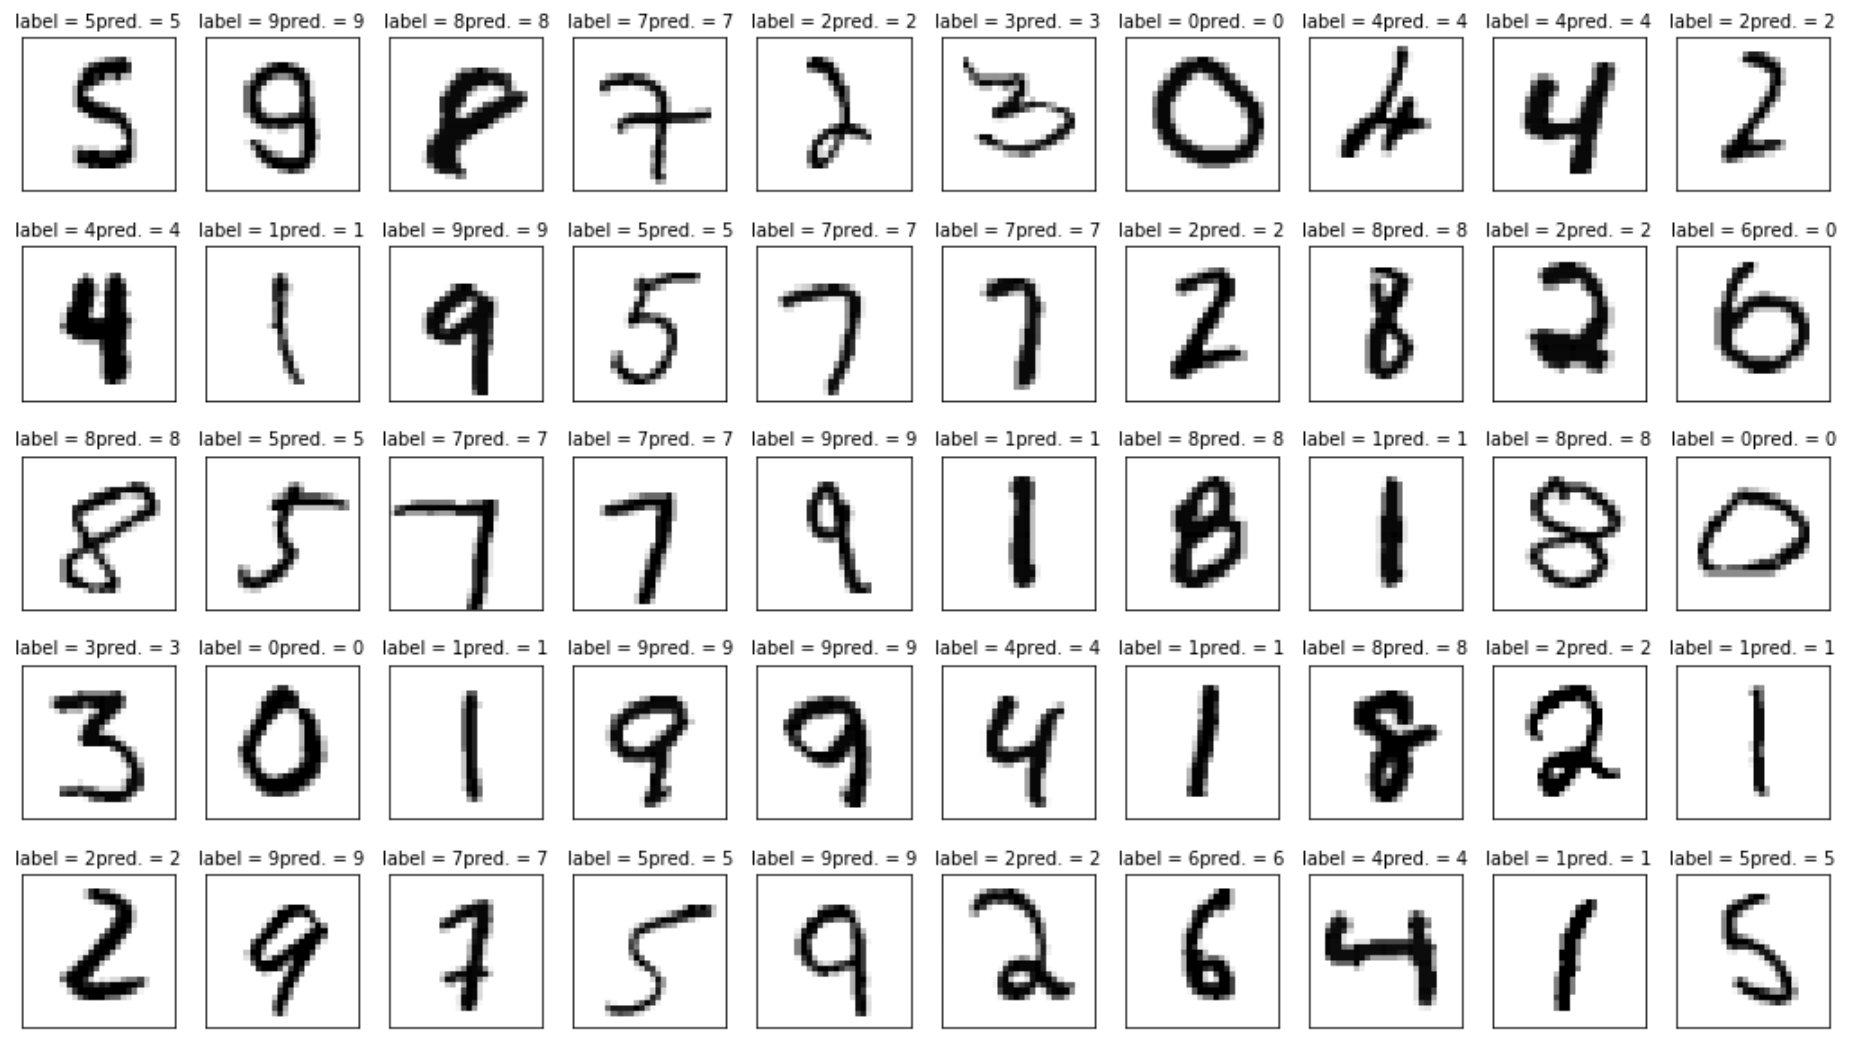 label = 5pred. = 5 label = 9pred. = 9 label = 8pred. = 8 label = 7pred. = 7 label = 2pred. = 2 label = 3pred. = 3 label = 0pred. = 0 label = 4pred. = 4 label = 4pred. = 4 label = 2pred. = 2
5 9 8 7 2 3 0 4 4 2
label = 4pred. = 4 label = 1pred. = 1 label = 9pred. = 9 label = 5pred. = 5 label = 7pred. = 7 label = 7pred. = 7 label = 2pred. = 2 label = 8pred. = 8 label = 2pred. = 2 label = 6pred. = 0
4 1 9 5 7 7 2 8 2 6
label = 8pred. = 8 label = 5pred. = 5 label = 7pred. = 7 label = 7pred. = 7 label = 9pred. = 9 label = 1pred. = 1 label = 8pred. = 8 label = 1pred. = 1 label = 8pred. = 8 label = 0pred. = 0
8 5 7 7 9 1 8 1 8 0
label = 3pred. = 3 label = 0pred. = 0 label = 1pred. = 1 label = 9pred. = 9 label = 9pred. = 9 label = 4pred. = 4 label = 1pred. = 1 label = 8pred. = 8 label = 2pred. = 2 label = 1pred. = 1
3 0 1 9 9 4 1 8 2 1
label = 2pred. = 2 label = 9pred. = 9 label = 7pred. = 7 label = 5pred. = 5 label = 9pred. = 9 label = 2pred. = 2 label = 6pred. = 6 label = 4pred. = 4 label = 1pred. = 1 label = 5pred. = 5
2 9 7 5 9 2 6 4 1 5